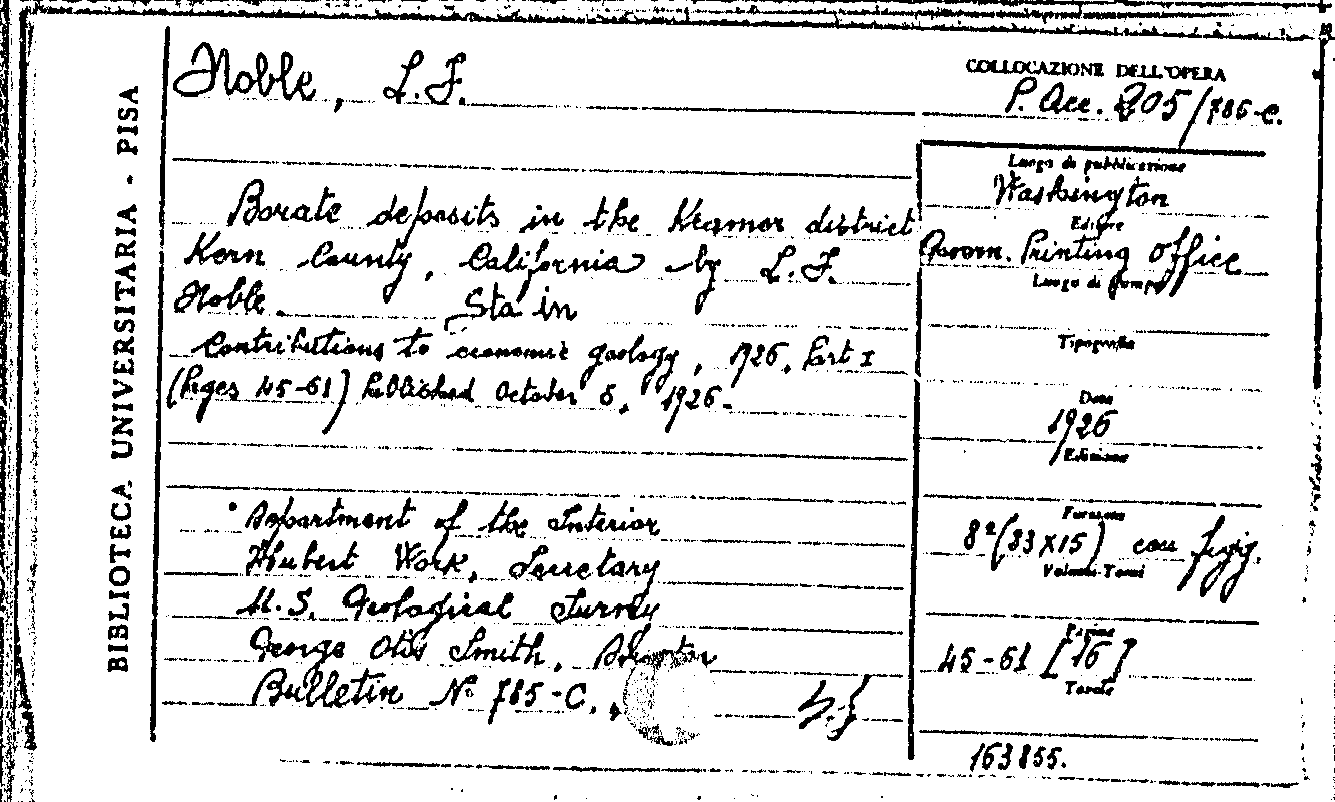 BIBLIOTECA UNIVERSITARIA - PISA
Noble, L.F.
COLLOCAZIONE DELL'OPERA
P. Acc. 205/786-C.
Borate deposits in the Kramer district
Kern County, California by L.F.
Noble. Sta in
Contributions to economic geology, 1926, Part I
(Pages 45-61) Published October 5, 1926-
Department of the Interior
Hubert Work, Secretary
U.S. Geological Survey
George Otis Smith, Director
Bulletin N° 785-C.
Luogo di pubblicazione
Washington
Editore
Govern. Printing Office
Luogo di stampa
Tipografia
Data
1926
Edizione
Formato
8°(23X15) con figg.
Volumi-Tomi
Pagine
45-61 [16]
Tavole
163855.